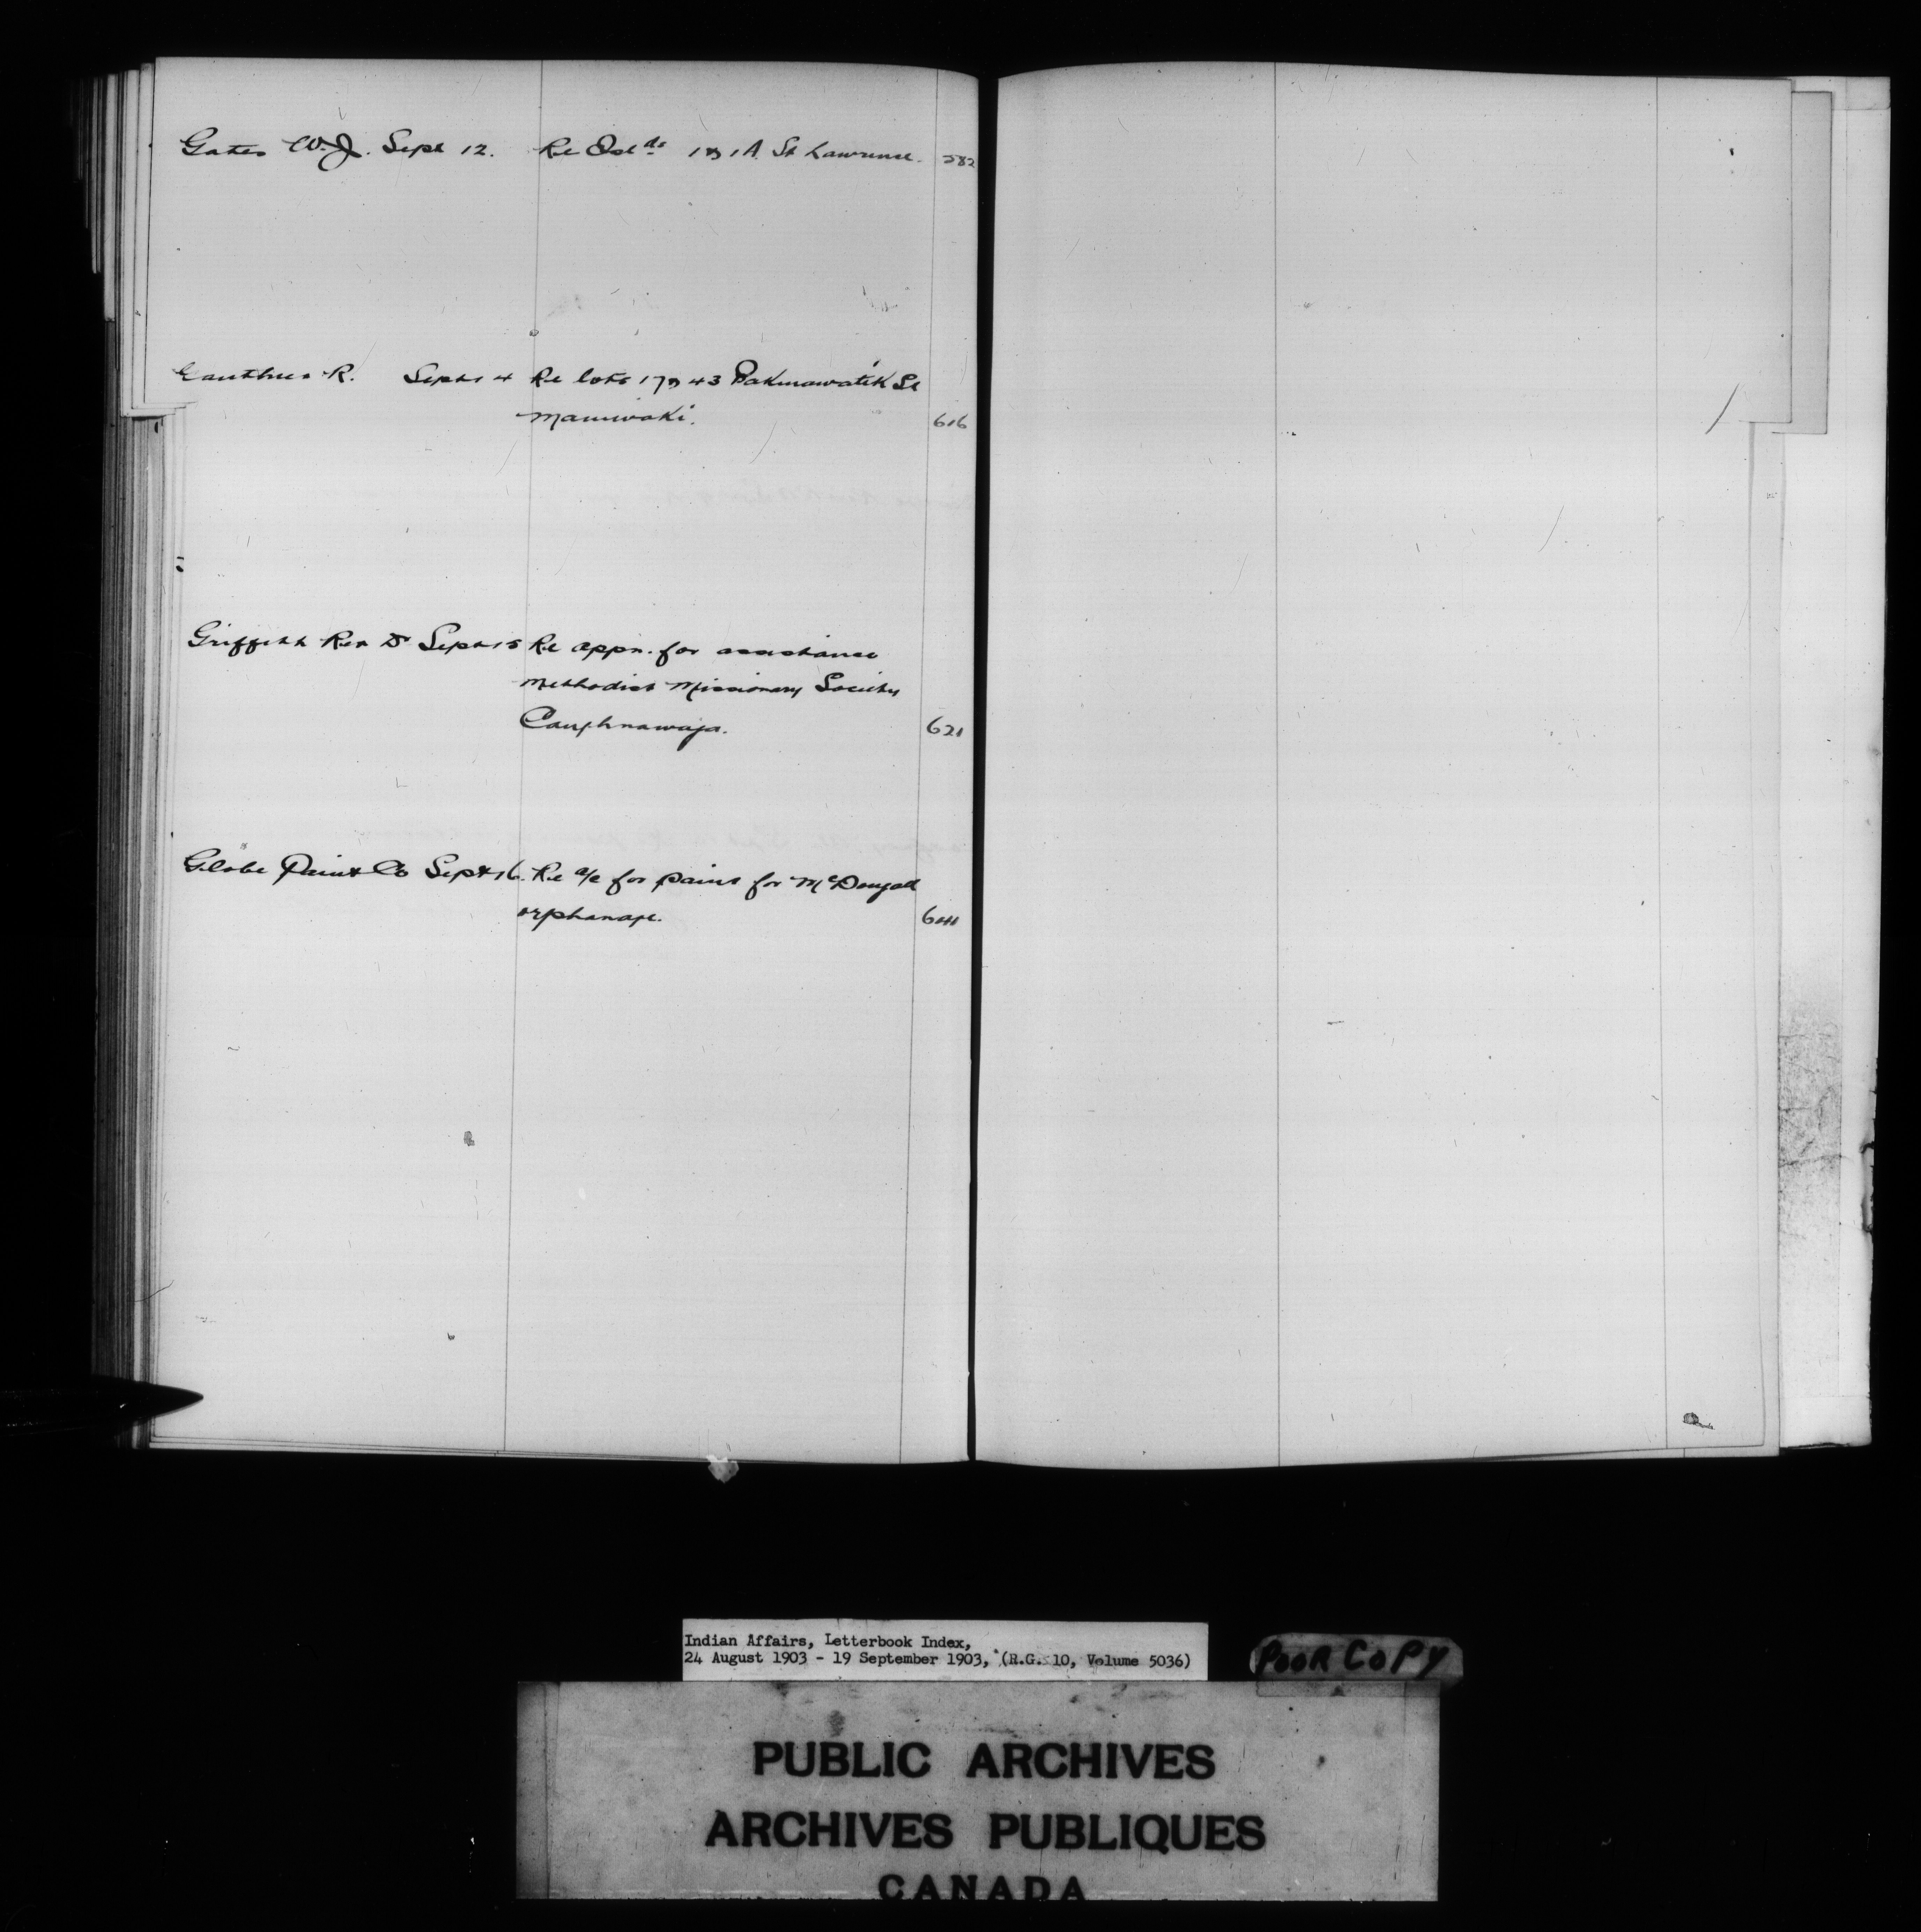 Gates W. J. Sept 12. Re Isl ds 1 & 1A. St Lawrence. 582
Gauthier R. Sept 14 Re lots 17 & 43 Pakinawatik St
Maniwaki. 616
Griffith Rev D Sept 15 Re appn. for assistance
Methodist Missionary Society
Caughnawaga. 621
Globe Paint Co Sept 16. Re a/c for paint for McDougall
orphanage.
Indian Affairs, Letterbook Index,
24 August 1903 - 19 September 1903, (R.G. 10, Volume 5036)
POOR COPY
PUBLIC ARCHIVES
ARCHIVES PUBLIQUES
CANADA